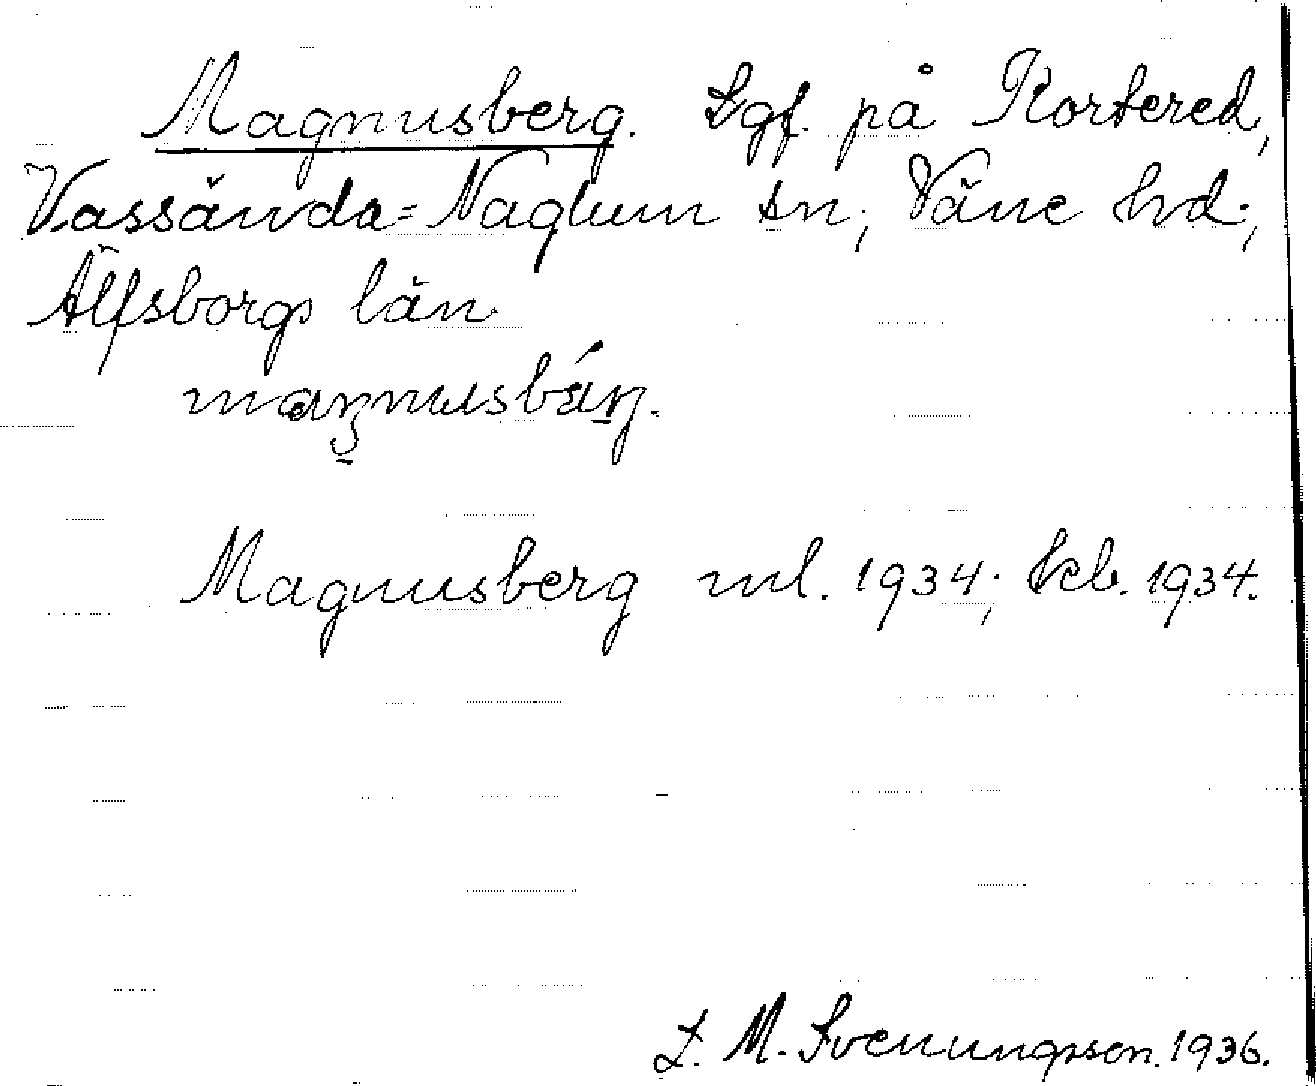 Magnusberg. Lgf. på Kortered,
Vassända=Naglum sn, Väne hd;
Älfsborgs län
Magnusberg ml. 1934; kb. 1934.
L. M. Svenungsson. 1936.